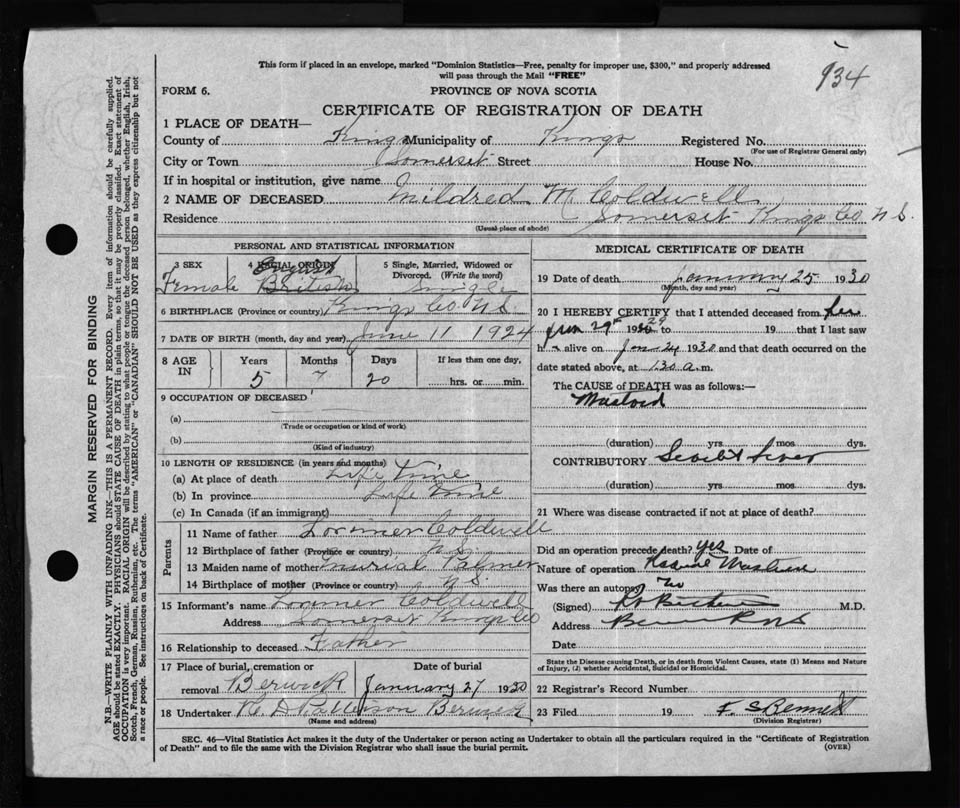 934
This form if placed in an envelope, marked "Dominion Statistics—Free, penalty for improper use, $300," and properly addressed
will pass through the Mail "FREE"
FORM 6. PROVINCE OF NOVA SCOTIA
CERTIFICATE OF REGISTRATION OF DEATH
1 PLACE OF DEATH—
County of Kings Municipality of Kings Registered No.
(For use of Registrar General only)
City or Town Somerset Street House No.
If in hospital or institution, give name
2 NAME OF DECEASED Mildred M Coldwell
Residence Somerset Kings Co N S.
(Usual place of abode)
PERSONAL AND STATISTICAL INFORMATION
3 SEX 4 RACIAL ORIGIN 5 Single, Married, Widowed or
Divorced. (Write the word)
English
Female British Single
6 BIRTHPLACE (Province or country) Kings Co N S.
7 DATE OF BIRTH (month, day and year) June 11 1924
8 AGE IN Years Months Days If less than one day,
5 7 20 hrs. or min.
9 OCCUPATION OF DECEASED
(a)
(Trade or occupation or kind of work)
(b)
(Kind of industry)
10 LENGTH OF RESIDENCE (in years and months)
(a) At place of death Life Time
(b) In province Life Time
(c) In Canada (if an immigrant)
Parents
11 Name of father Lorimer Coldwell
12 Birthplace of father (Province or country) N S.
13 Maiden name of mother Murial Palmer
14 Birthplace of mother (Province or country) N S.
15 Informant's name Lorimer Coldwell
Address Somerset Kings Co
16 Relationship to deceased Father
17 Place of burial, cremation or Date of burial
removal Berwick January 27 1930
18 Undertaker Berwick
(Name and address)
MEDICAL CERTIFICATE OF DEATH
19 Date of death January 25 1930
(Month, day and year)
20 I HEREBY CERTIFY that I attended deceased from
19 to 19 that I last saw
h alive on Jan 24 1930 and that death occurred on the
date stated above, at 1 30 a. m.
The CAUSE of DEATH was as follows:—
Mastoid
(duration) yrs mos dys.
CONTRIBUTORY Fever
(duration) yrs. mos. dys.
21 Where was disease contracted if not at place of death?
Did an operation precede death? yes Date of
Nature of operation
Was there an autopsy no
(Signed) M.D.
Address
Date
State the Disease causing Death, or in death from Violent Causes, state (1) Means and Nature
of Injury, (2) whether Accidental, Suicidal or Homicidal.
22 Registrar's Record Number
23 Filed 19 F. S Bennett
(Division Registrar)
SEC. 46—Vital Statistics Act makes it the duty of the Undertaker or person acting as Undertaker to obtain all the particulars required in the "Certificate of Registration
of Death" and to file the same with the Division Registrar who shall issue the burial permit. (OVER)
MARGIN RESERVED FOR BINDING
N.B.—WRITE PLAINLY WITH UNFADING INK—THIS IS A PERMANENT RECORD. Every item of information should be carefully supplied.
AGE should be stated EXACTLY. PHYSICIANS should STATE CAUSE OF DEATH in plain terms, so that it may be properly classified. Exact statement of
OCCUPATION is very important. RACIAL ORIGIN will be described by stating to what people or tongue the deceased person belonged, whether English, Irish,
Scotch, French, German, Russian, Ruthenian, etc. The terms "AMERICAN" or "CANADIAN" SHOULD NOT BE USED as they express citizenship but not
a race or people. See instructions on back of Certificate.